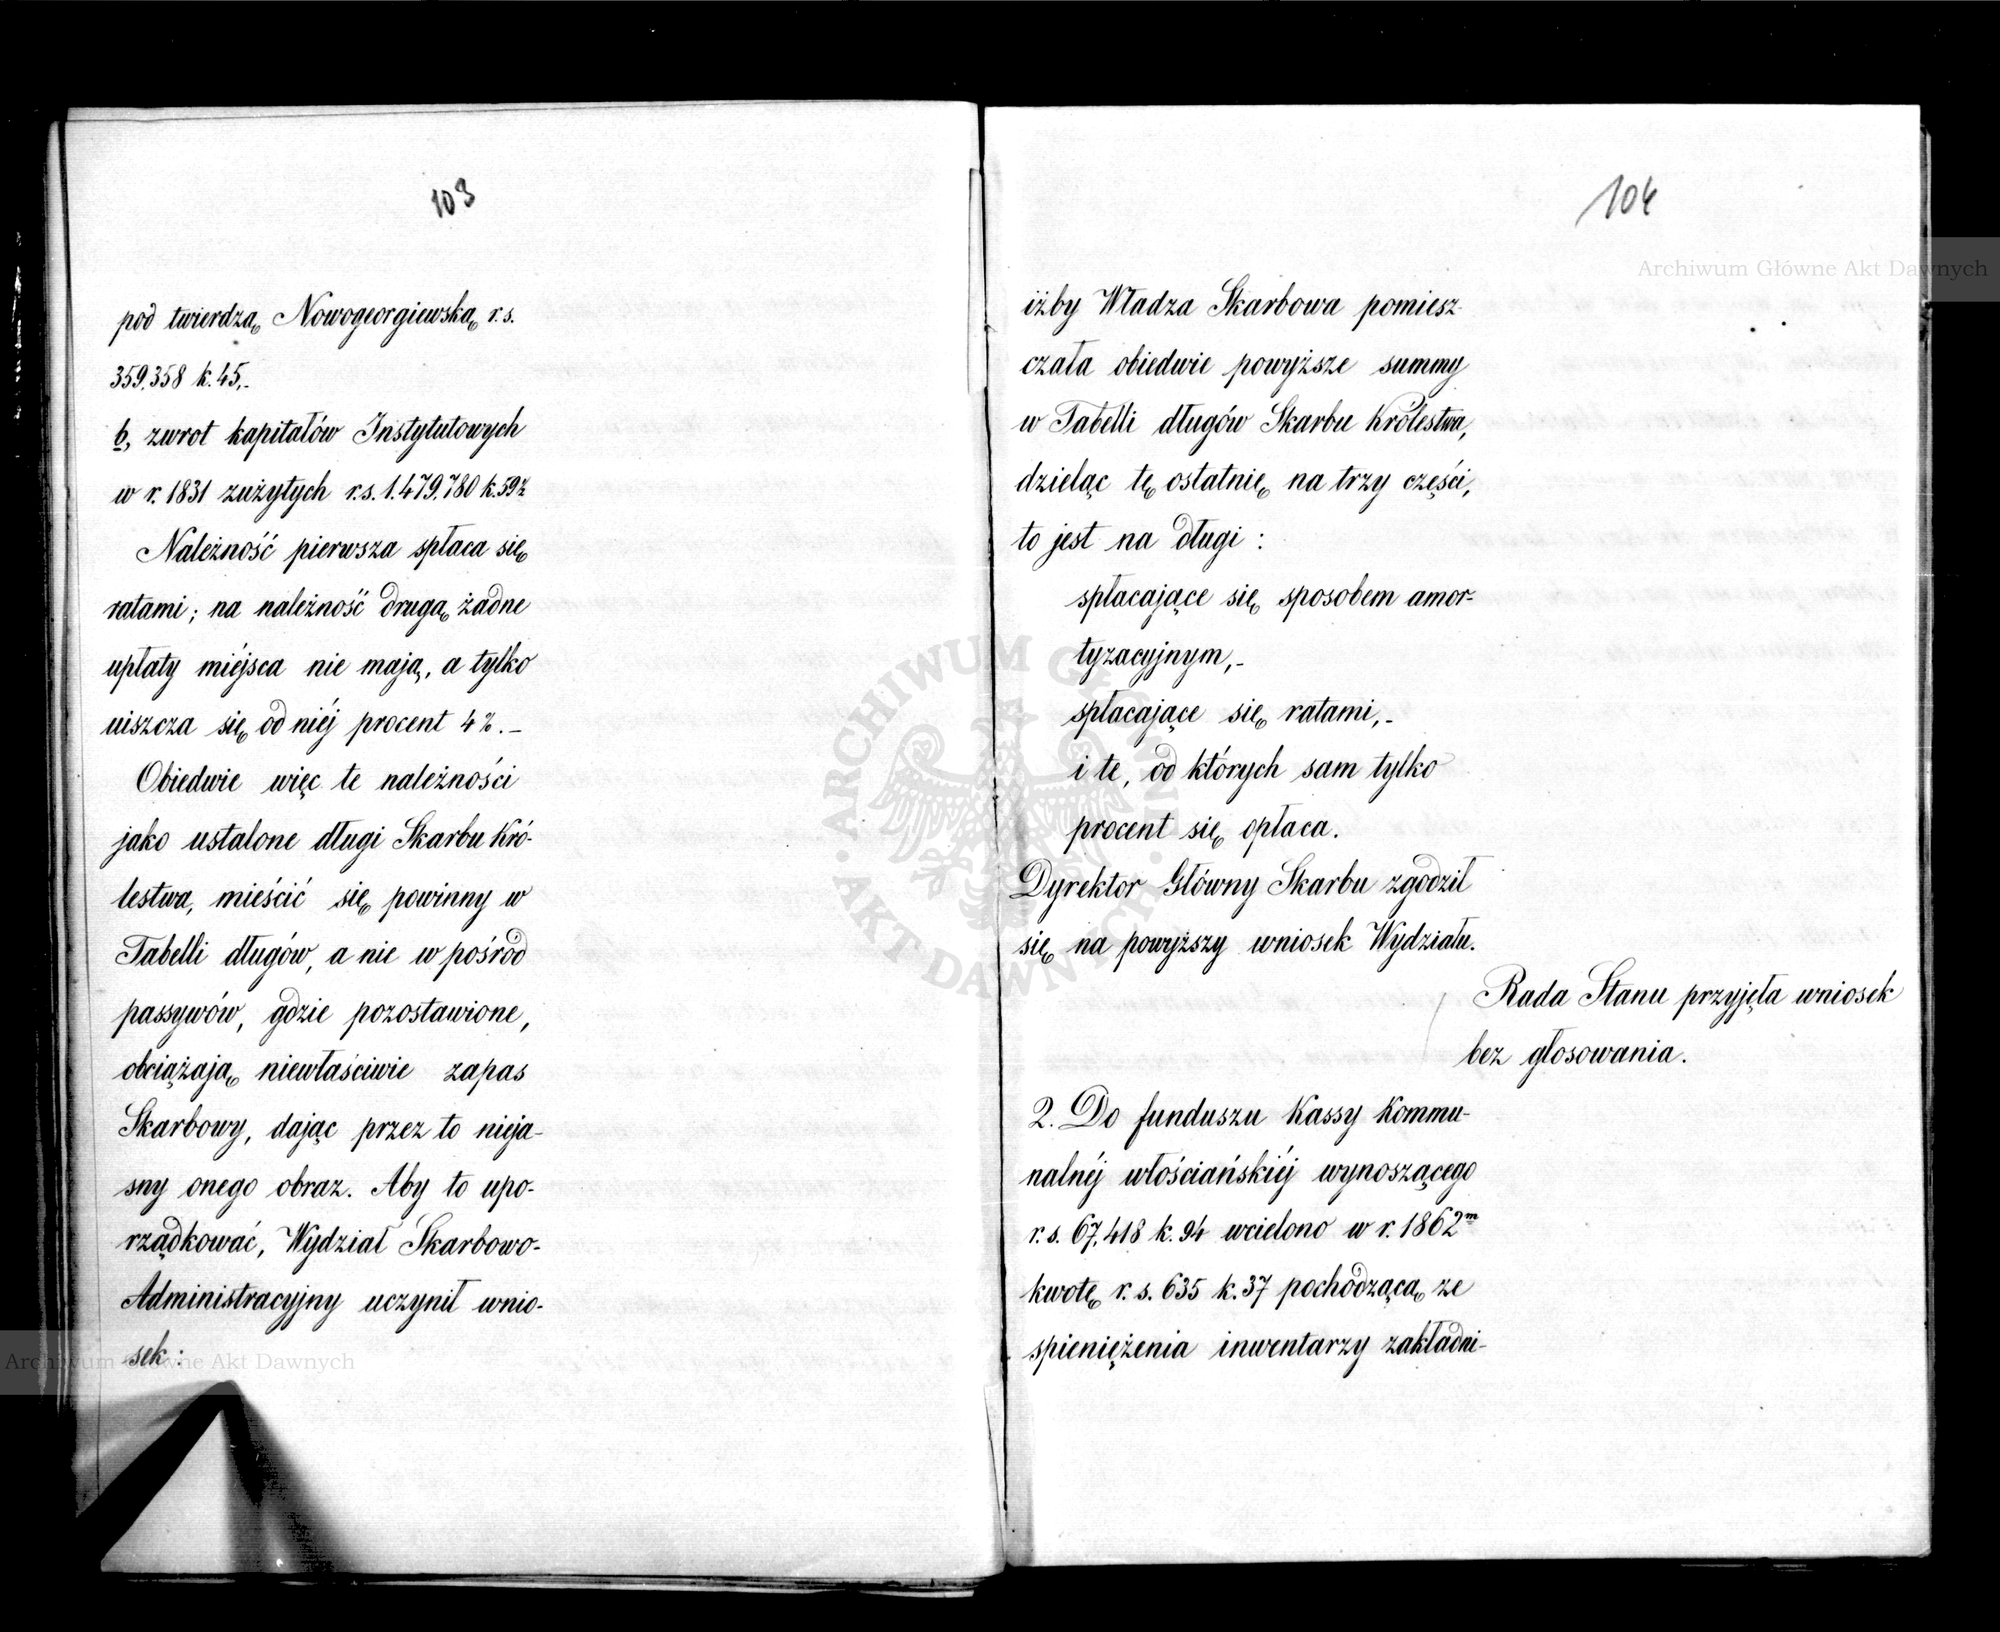 103
pod twierdzą Nowogeorgiewską r.s.
359,358 k. 45,-
b, zwrot kapitałów Instytutowych
w r. 1831 zużytych r.s. 1.479,780 k. 59½
Należność pierwsza spłaca się
ratami; na należność drugą żadne
upłaty miéjsca nie mają, a tylko
uiszcza się od niéj procent 4%.-
Obiedwie więc te należności
jako ustalone długi Skarbu Kró-
lestwa, mieścić się powinny w
Tabelli długów, a nie w pośród
passywów, gdzie pozostawione,
obciążają niewłaściwie zapas
Skarbowy, dając przez to nieja-
sny onego obraz. Aby to upo-
rządkować, Wydział Skarbowo-
Administracyjny uczynił wnio-
sek:
104
iżby Władza Skarbowa pomiesz-
czała obiedwie powyższe summy
w Tabelli długów Skarbu Królestwa,
dzieląc tę ostatnię na trzy części,
to jest na długi:
spłacające się sposobem amor-
tyzacyjnym,-
spłacające się ratami,-
i te, od których sam tylko
procent się opłaca.
Dyrektor Główny Skarbu zgodził
się na powyższy wniosek Wydziału.
Rada Stanu przyjęła wniosek
bez głosowania.
2. Do funduszu Kassy Kommu-
nalnéj włościańskiéj wynoszącego
r.s. 67,418 k. 94 wcielono w r. 1862m
kwotę r.s. 635 k. 37 pochodzącą ze
spieniężenia inwentarzy zakładni-
Archiwum Główne Akt Dawnych
Archiwum Główne Akt Dawnych
ARCHIWUM GŁÓWNE AKT DAWNYCH